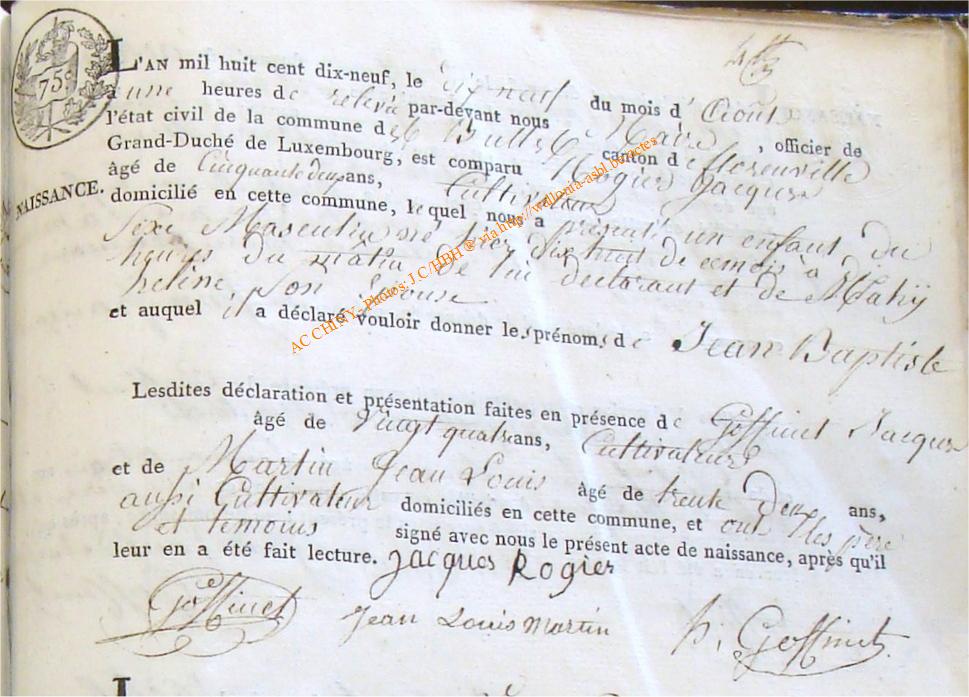 75c.
NAISSANCE.
L'AN mil huit cent dix-neuf, le dix neuf du mois d'Aout
à une heures de relevée par-devant nous Maire, officier de
l'état civil de la commune de Bulles canton de florenville
Grand-Duché de Luxembourg, est comparu Rogier Jacques
âgé de Cinquante deux ans, Cultivateur
domicilié en cette commune, lequel nous a présenté un enfant du
Sexe Masculin né hier dix huit de ce mois à
heures du matin de lui déclarant et de Mahy
helene son Epouse
et auquel il a déclaré vouloir donner les prénoms de Jean Baptiste
Lesdites déclaration et présentation faites en présence de Goffinet Jacques
âgé de Vingt quatre ans, Cultivateur
et de Martin Jean Louis âgé de trente Deux ans,
aussi Cultivateur domiciliés en cette commune, et ont les père
et temoins signé avec nous le présent acte de naissance, après qu'il
leur en a été fait lecture. Jacques Rogier
Goffinet Jean Louis Martin Goffinet
L
AC CHINY - Photos J.C/HBH ® via http://wallonia-asbl.be/actes